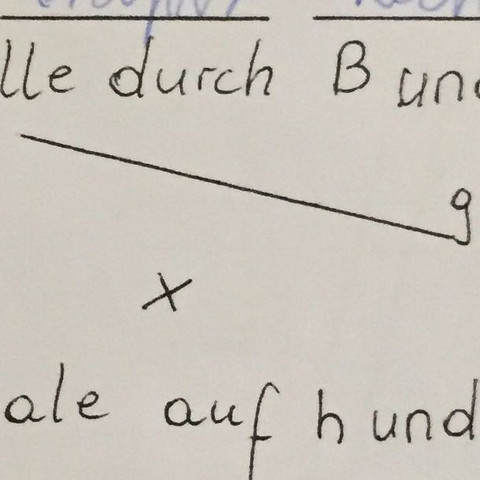 lle durch B und
g
x
ale auf h und